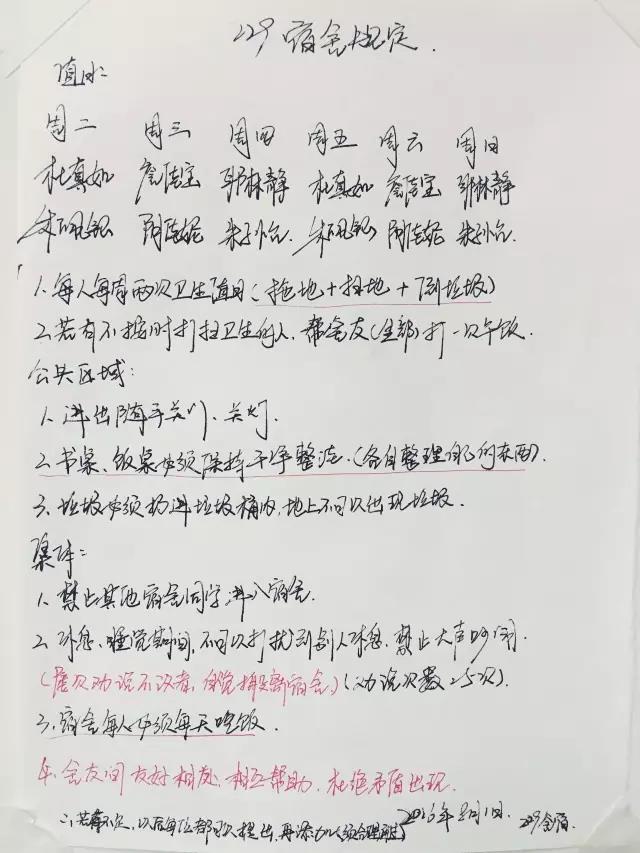 229宿舍规定.
值日:
周二 周三 周四 周五 周六 周日
杜真如 詹佳宝 郭林静 杜真如 詹佳宝 郭林静
1.每人每周两次卫生值日(拖地+扫地+倒垃圾)
2.若有不按时打扫卫生的人,帮舍友(全部)打一次午饭.
公共区域:
1.进出随手关门、关灯.
2.书桌、饭桌必须保持干净整洁.(各自整理自己的东西).
3.垃圾必须扔进垃圾桶内,地上不可以出现垃圾.
集体:
1.禁止其他宿舍同学进入宿舍.
2.休息、睡觉期间,不可以打扰到别人休息,禁止大声吵闹.
(屡次劝说不改者,自觉搬离宿舍)(劝说次数≥5次).
3.宿舍每人必须每天吃饭.
4.舍友间友好相处,相互帮助,杜绝矛盾出现.
以后每位都可以提出,再添加
229全宿